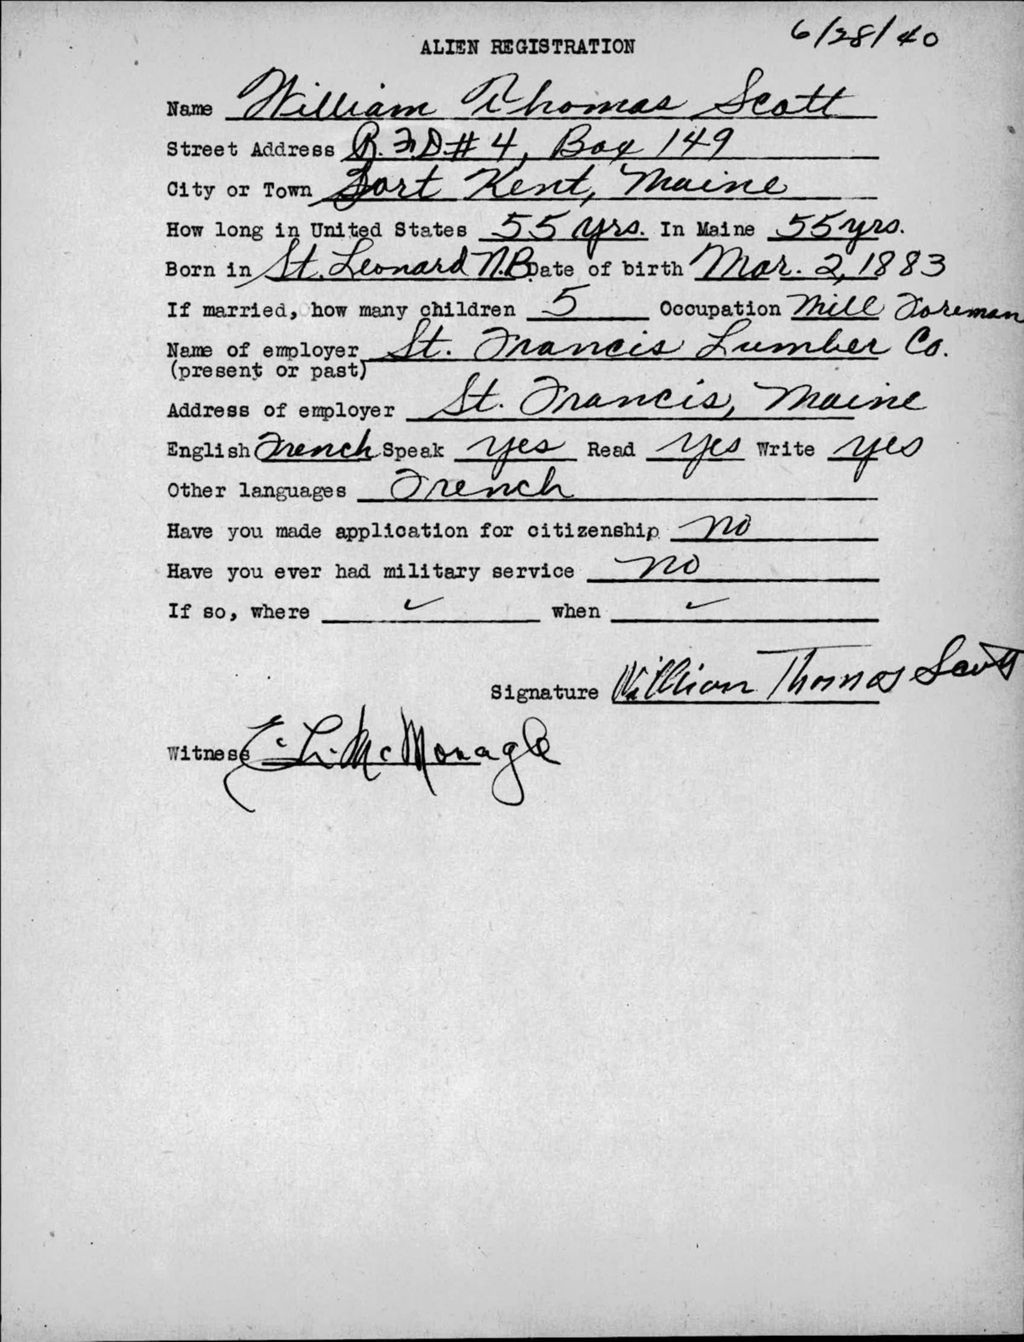 6/28/40
ALIEN REGISTRATION
Name William Thomas Scott
Street Address R.F.D # 4, Box 149
City or Town Fort Kent, Maine
How long in United States 55 yrs. In Maine 55 yrs.
Born in St. Leonard N.B. Date of birth Mar. 2, 1883
If married, how many children 5 Occupation Mill Foreman
Name of employer St. Francis Lumber Co.
(present or past)
Address of employer St. Francis, Maine
English French Speak yes Read yes Write yes
Other languages French
Have you made application for citizenship no
Have you ever had military service no
If so, where ✓ when ✓
Signature William Thomas Scott
Witness E. L. McMonagle